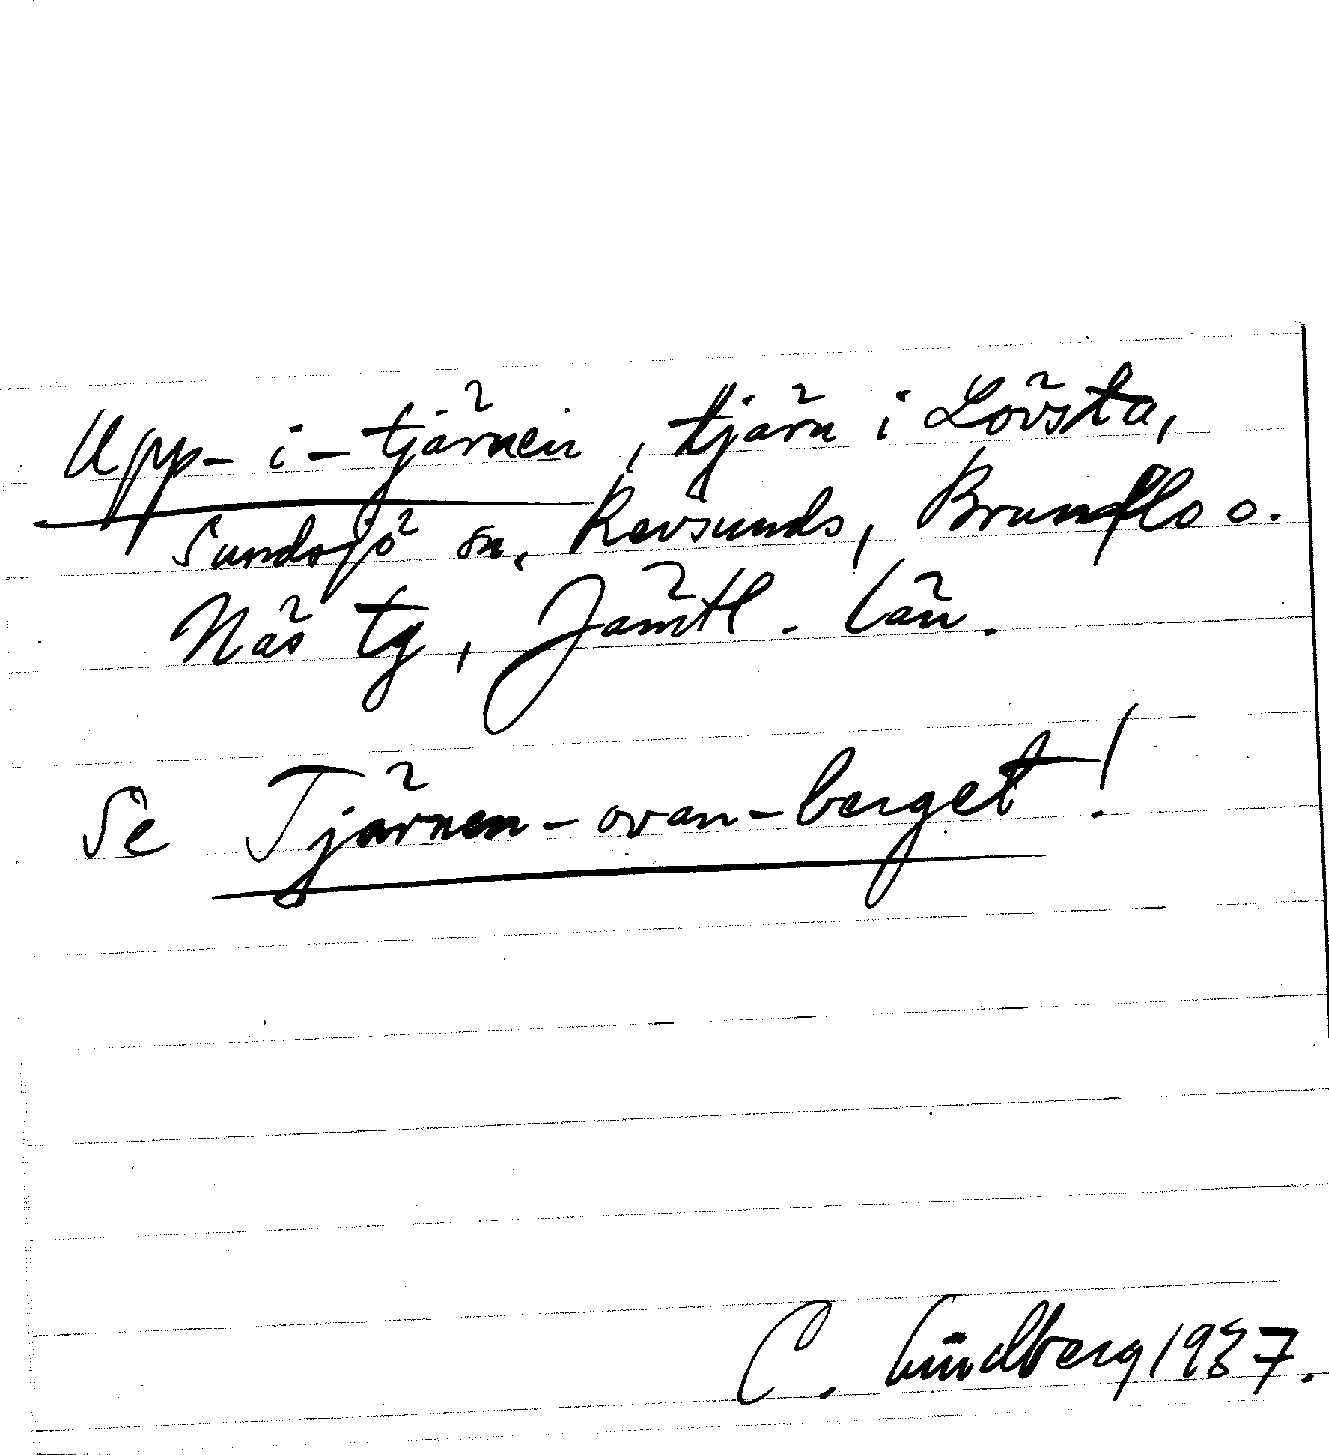 Upp-i-tjärnen, tjärn i Lövsta,
Sundsjö sn, Revsunds, Brunflo o.
Näs tg, Jämtl. län.
Se Tjärnen-ovan-berget!
C. Lindberg 1937.